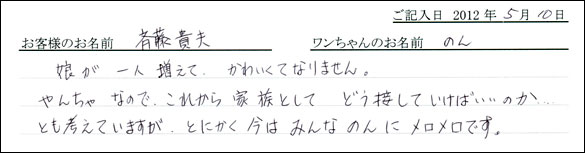 ご記入日 2012 年 5 月 10 日
お客様のお名前 斉藤貴夫 ワンちゃんのお名前 のん
娘が一人増えて、かわいくてなりません。
やんちゃなので、これから家族としてどう接していけばいいのか…
とも考えていますが、とにかく今はみんなのんにメロメロです。